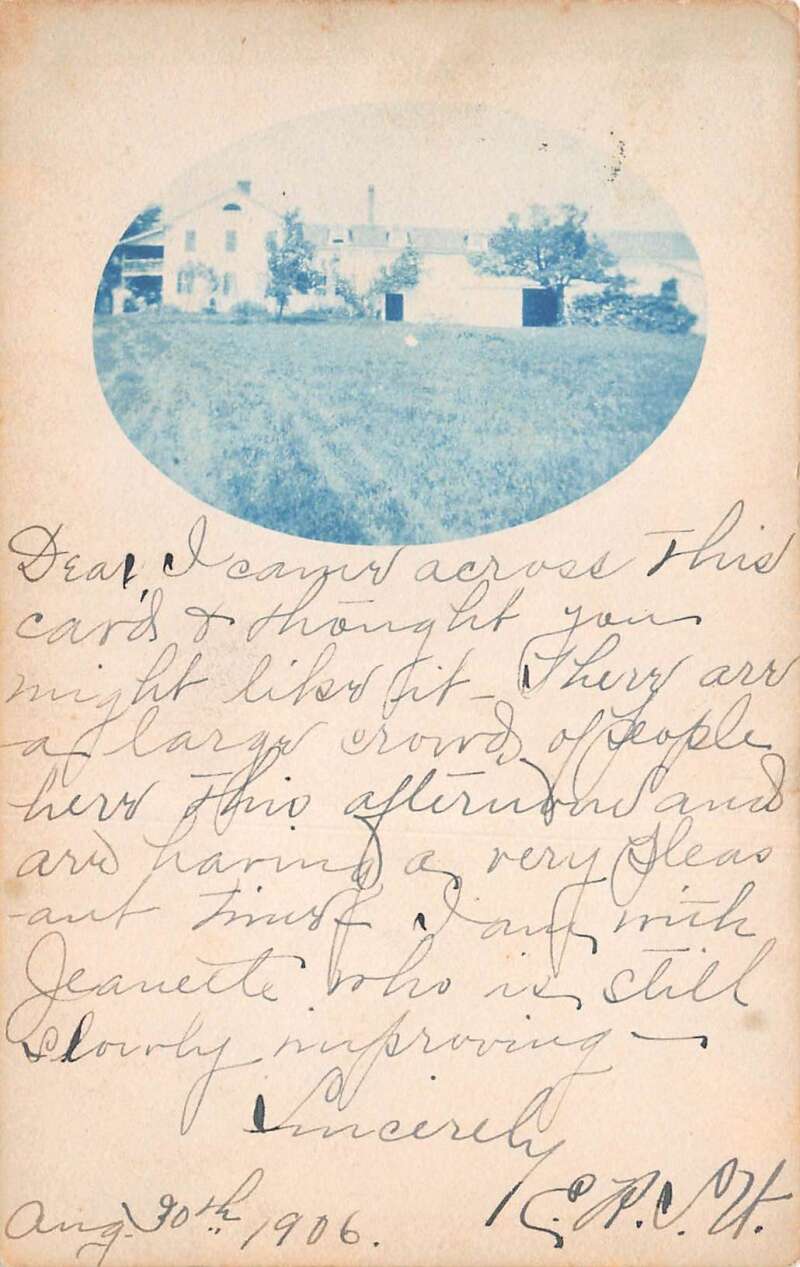 Dear, I came across this
card & thought you
might like it - There are
a large crowd of people
here this afternoon and
are having a very pleas
-ant time. I am with
Jeanette who is still
slowly improving -
Sincerely
Aug. 30th 1906.